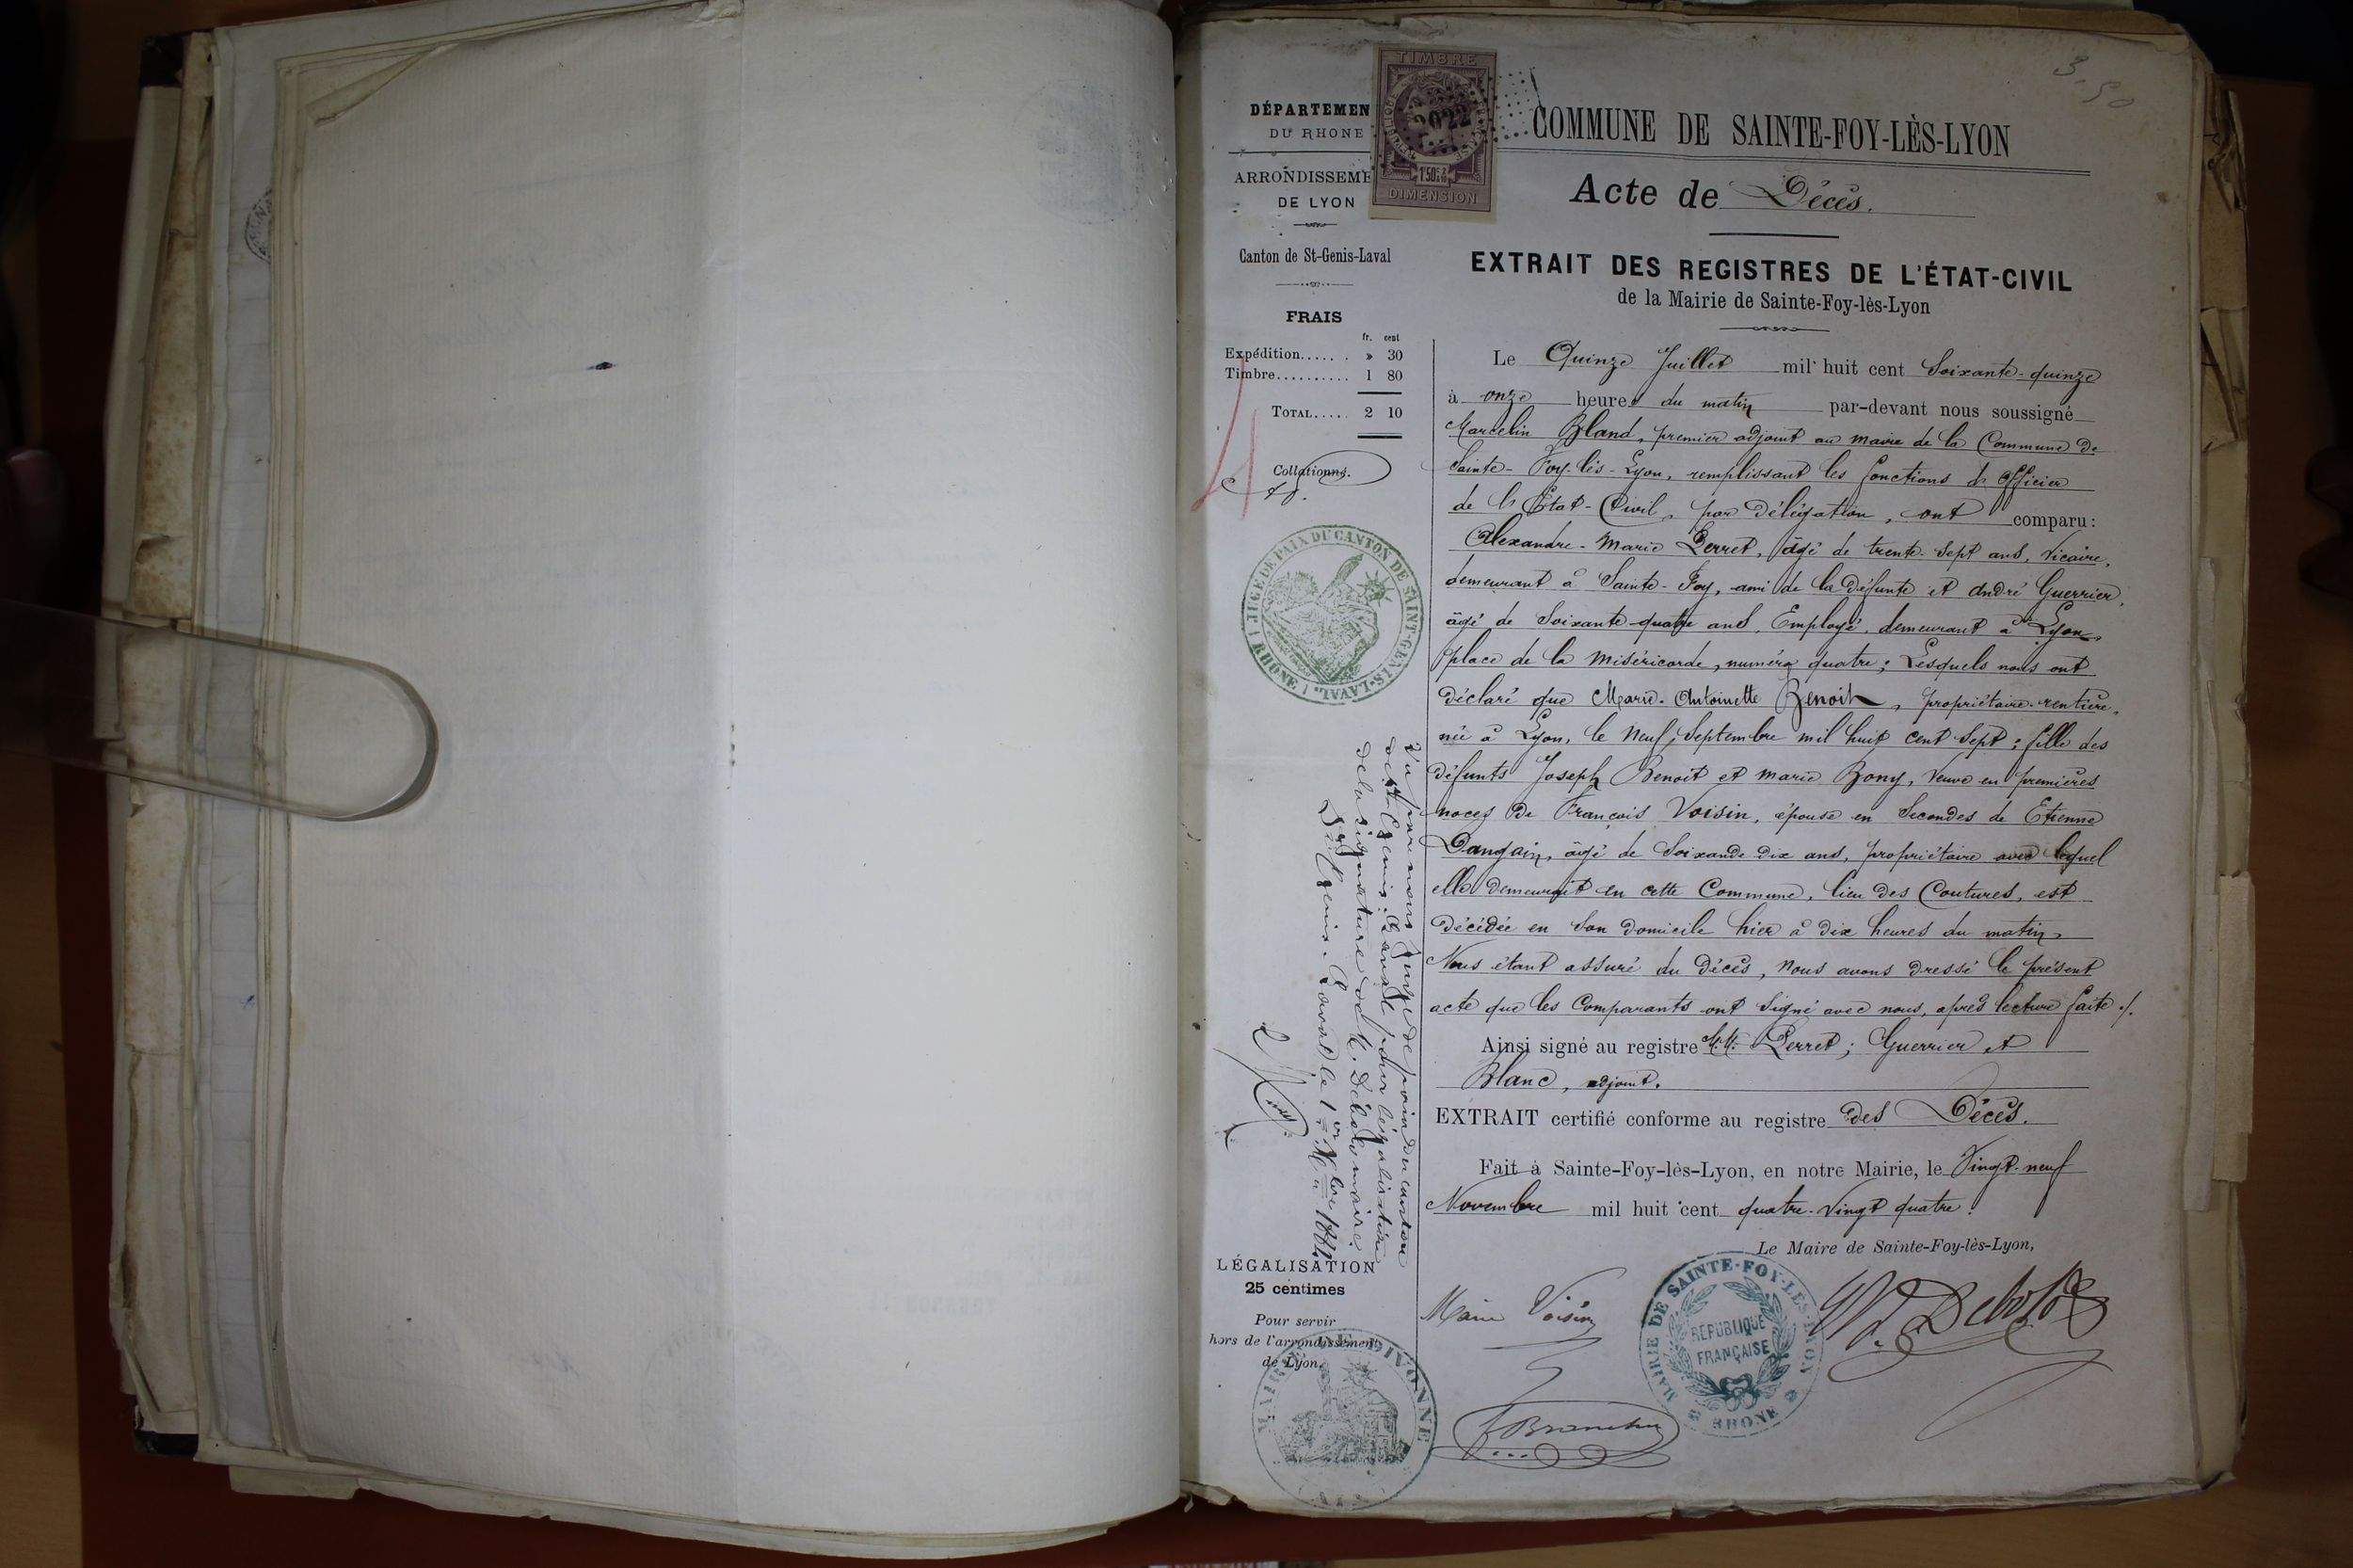 3,50
TIMBRE
2022
1F50C
DIMENSION
DÉPARTEMEN
DU RHONE
ARRONDISSEME
DE LYON
Canton de St-Genis-Laval
FRAIS
fr. cent
Expédition...... » 30
Timbre.......... 1 80
TOTAL..... 2 10
Collationné.
JUGE DE PAIX DU CANTON DE SAINT-GENIS-LAVAL
RHONE
Vu par nous Juge de paix du canton
de St Genis-Laval pour légalisation
de la signature de M. Débolo maire.
St Genis-Laval le 1er Xbre 1884
LÉGALISATION
25 centimes
Pour servir
hors de l'arrondissement
de Lyon.
MAIRIE DE DIVONNE
COMMUNE DE SAINTE-FOY-LÈS-LYON
Acte de Décès.
EXTRAIT DES REGISTRES DE L'ÉTAT-CIVIL
de la Mairie de Sainte-Foy-lès-Lyon
Le Quinze Juillet mil huit cent Soixante-quinze
à onze heures du matin par-devant nous soussigné
Marcelin Bland, premier adjoint au maire de la Commune de
Sainte-Foy-lès-Lyon, remplissant les fonctions d'Officier
de l'Etat-Civil, par délégation, ont comparu:
Alexandre-Marie Perret, âgé de trente-sept ans, Vicaire,
demeurant à Sainte-Foy, ami de la défunte et André Guerrier,
âgé de Soixante-quatre ans, Employé, demeurant à Lyon,
place de la Miséricorde, numéro quatre; Lesquels nous ont
déclaré que Marie-Antoinette Benoit, propriétaire-rentière,
née à Lyon, le neuf Septembre mil huit cent Sept; fille des
défunts Joseph Benoit et Marie Bony, Veuve en premières
noces de François Voisin, épouse en Secondes de Etienne
Dangain, âgé de Soixante dix ans, propriétaire avec lequel
elle demeurait en cette Commune, lieu des Coutures, est
décédée en Son domicile hier à dix heures du matin,
Nous étant assuré du Décès, nous avons dressé le présent
acte que les Comparants ont Signé avec nous, après lecture faite ./.
Ainsi signé au registre M.M. Perret; Guerrier et
Blanc, adjoint.
EXTRAIT certifié conforme au registre des Décès.
Fait à Sainte-Foy-lès-Lyon, en notre Mairie, le Vingt-neuf
Novembre mil huit cent quatre-Vingt quatre.
Le Maire de Sainte-Foy-lès-Lyon,
Marie Voisin
MAIRIE DE SAINTE-FOY-LES-LYON
RÉPUBLIQUE
FRANÇAISE
RHONE